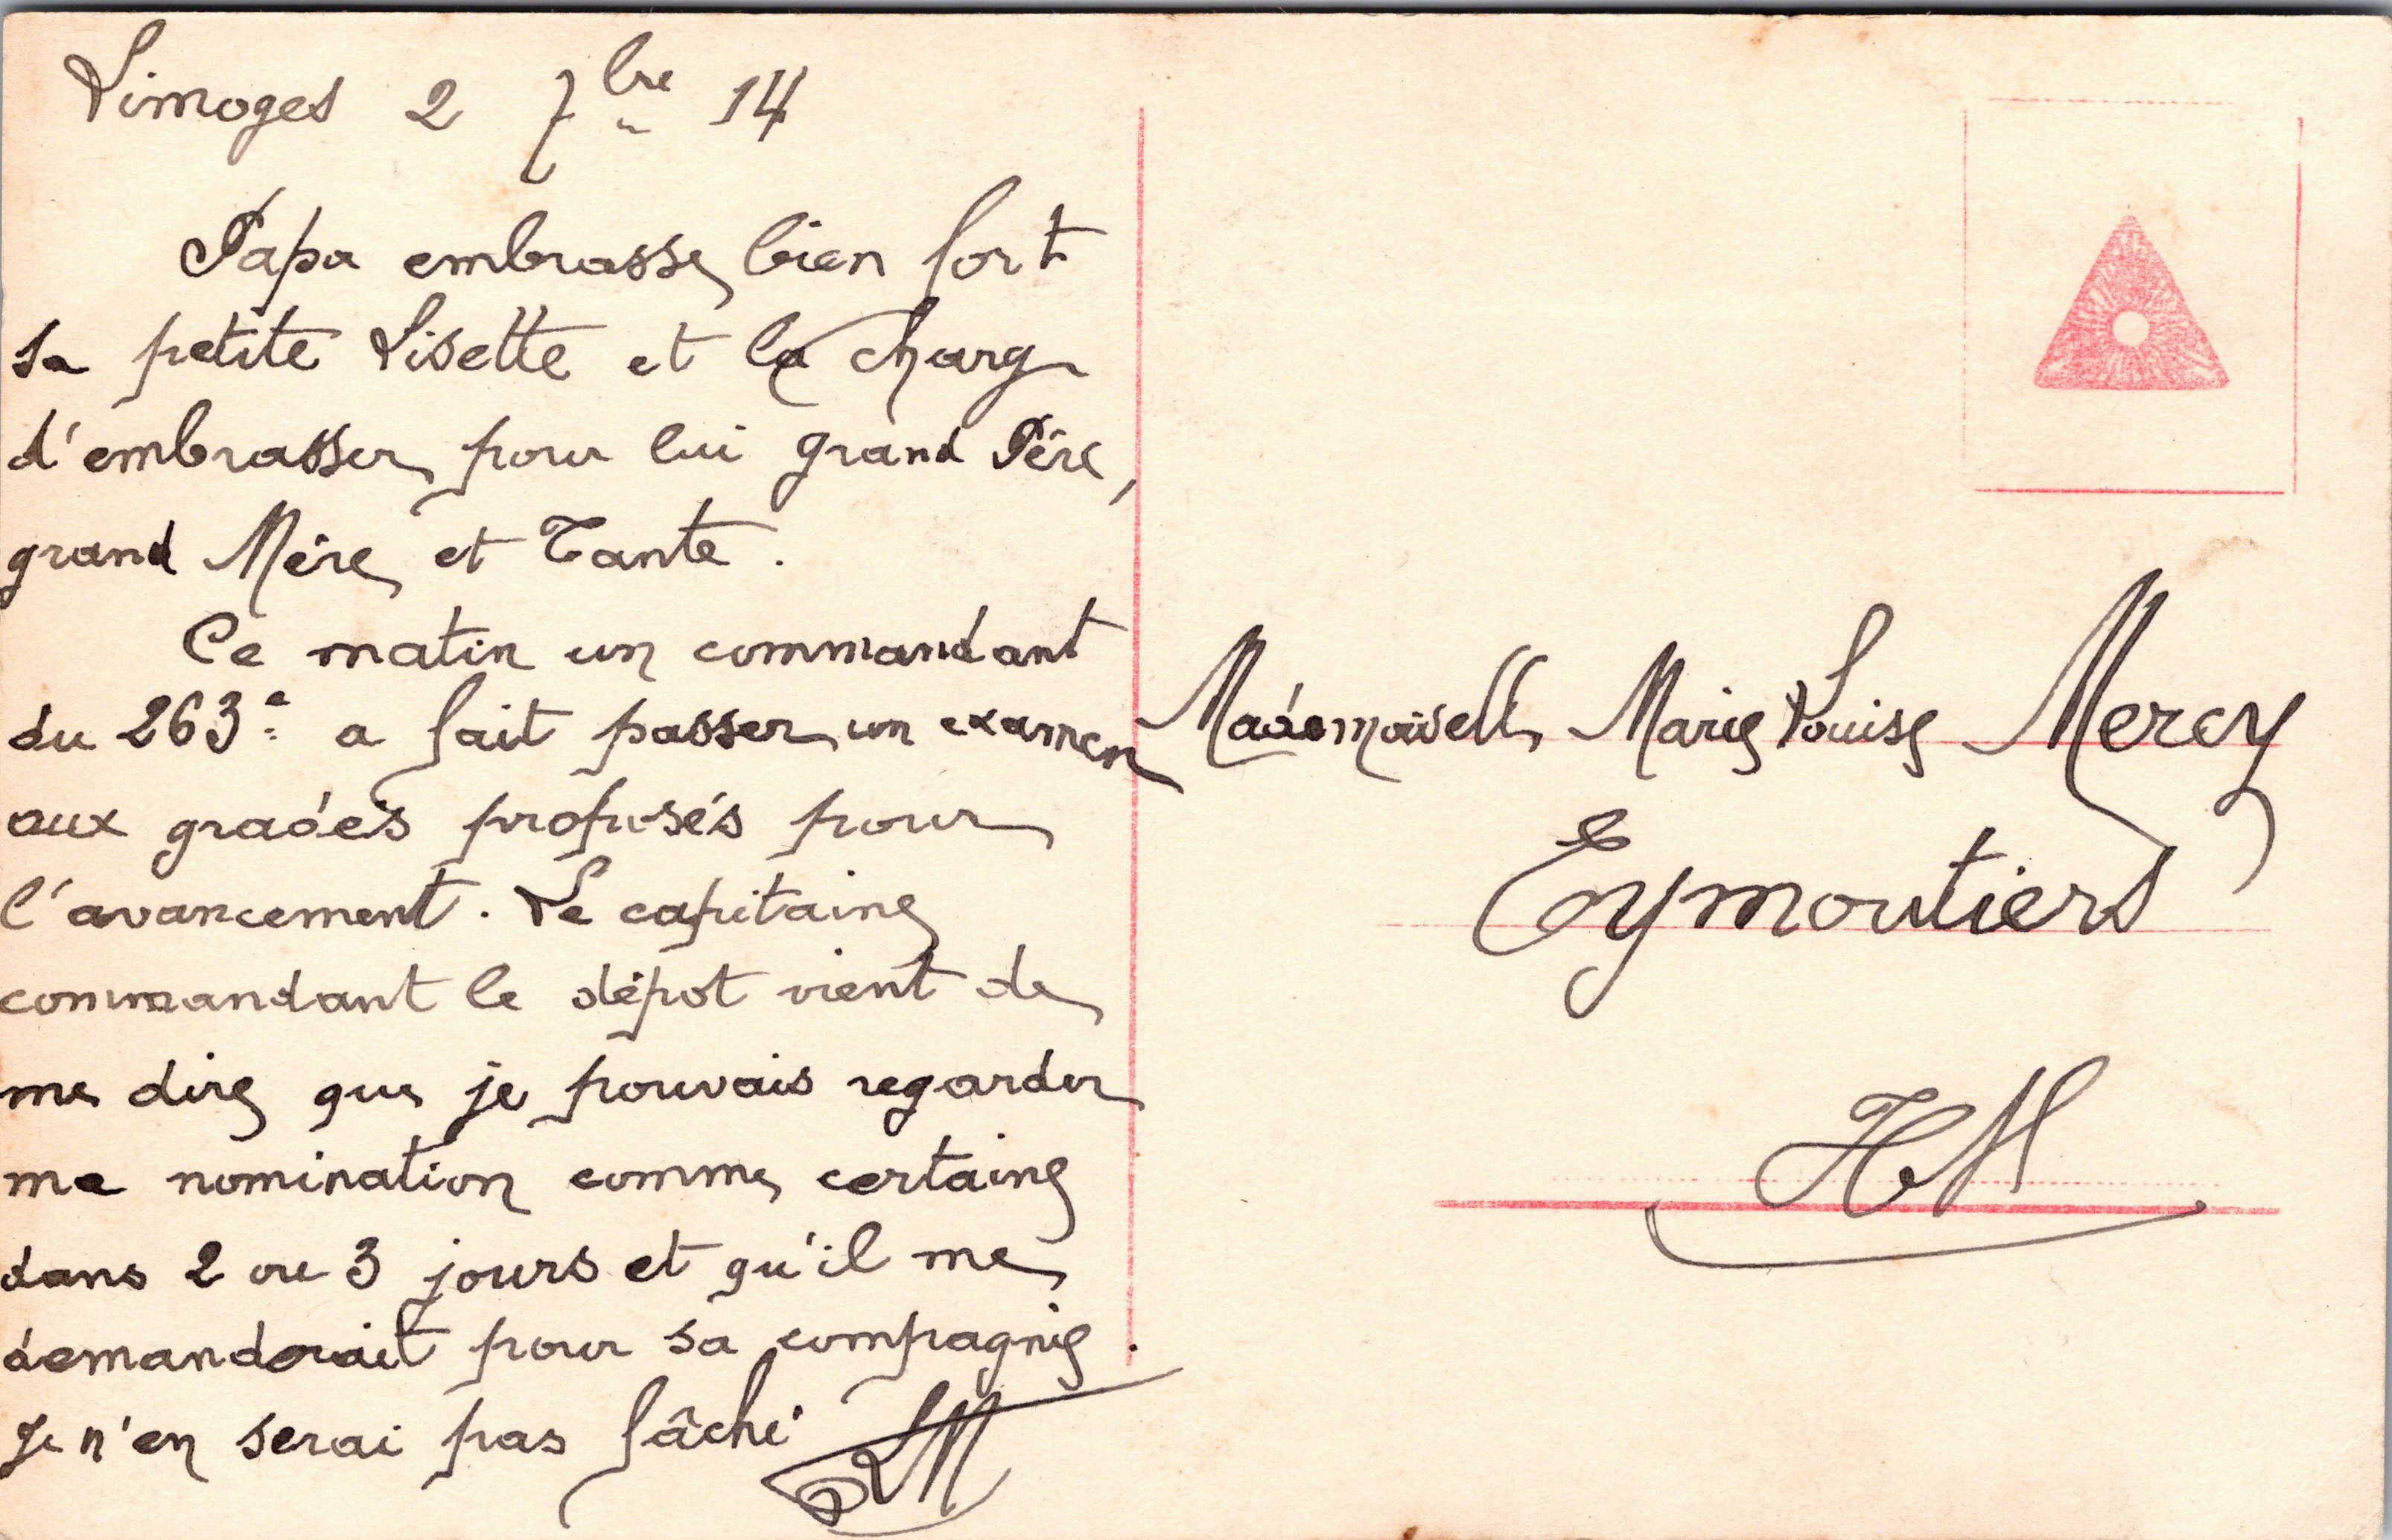 Limoges 2 7bre 14
Papa embrasse bien fort
sa petite Lisette et la charge
d'embrasser pour lui grand Père,
grand Mère et Tante.
Ce matin un commandant
du 263e a fait passer un examen
aux gradés proposés pour
l'avancement. Le capitaine
commandant le dépot vient de
me dire que je pouvais regarder
ma nomination comme certaine
dans 2 ou 3 jours et qu'il me
demanderait pour sa compagnie.
Je n'en serai pas fâché
LM
Mademoiselle Marie Louise Mercy
Eymoutiers
HM